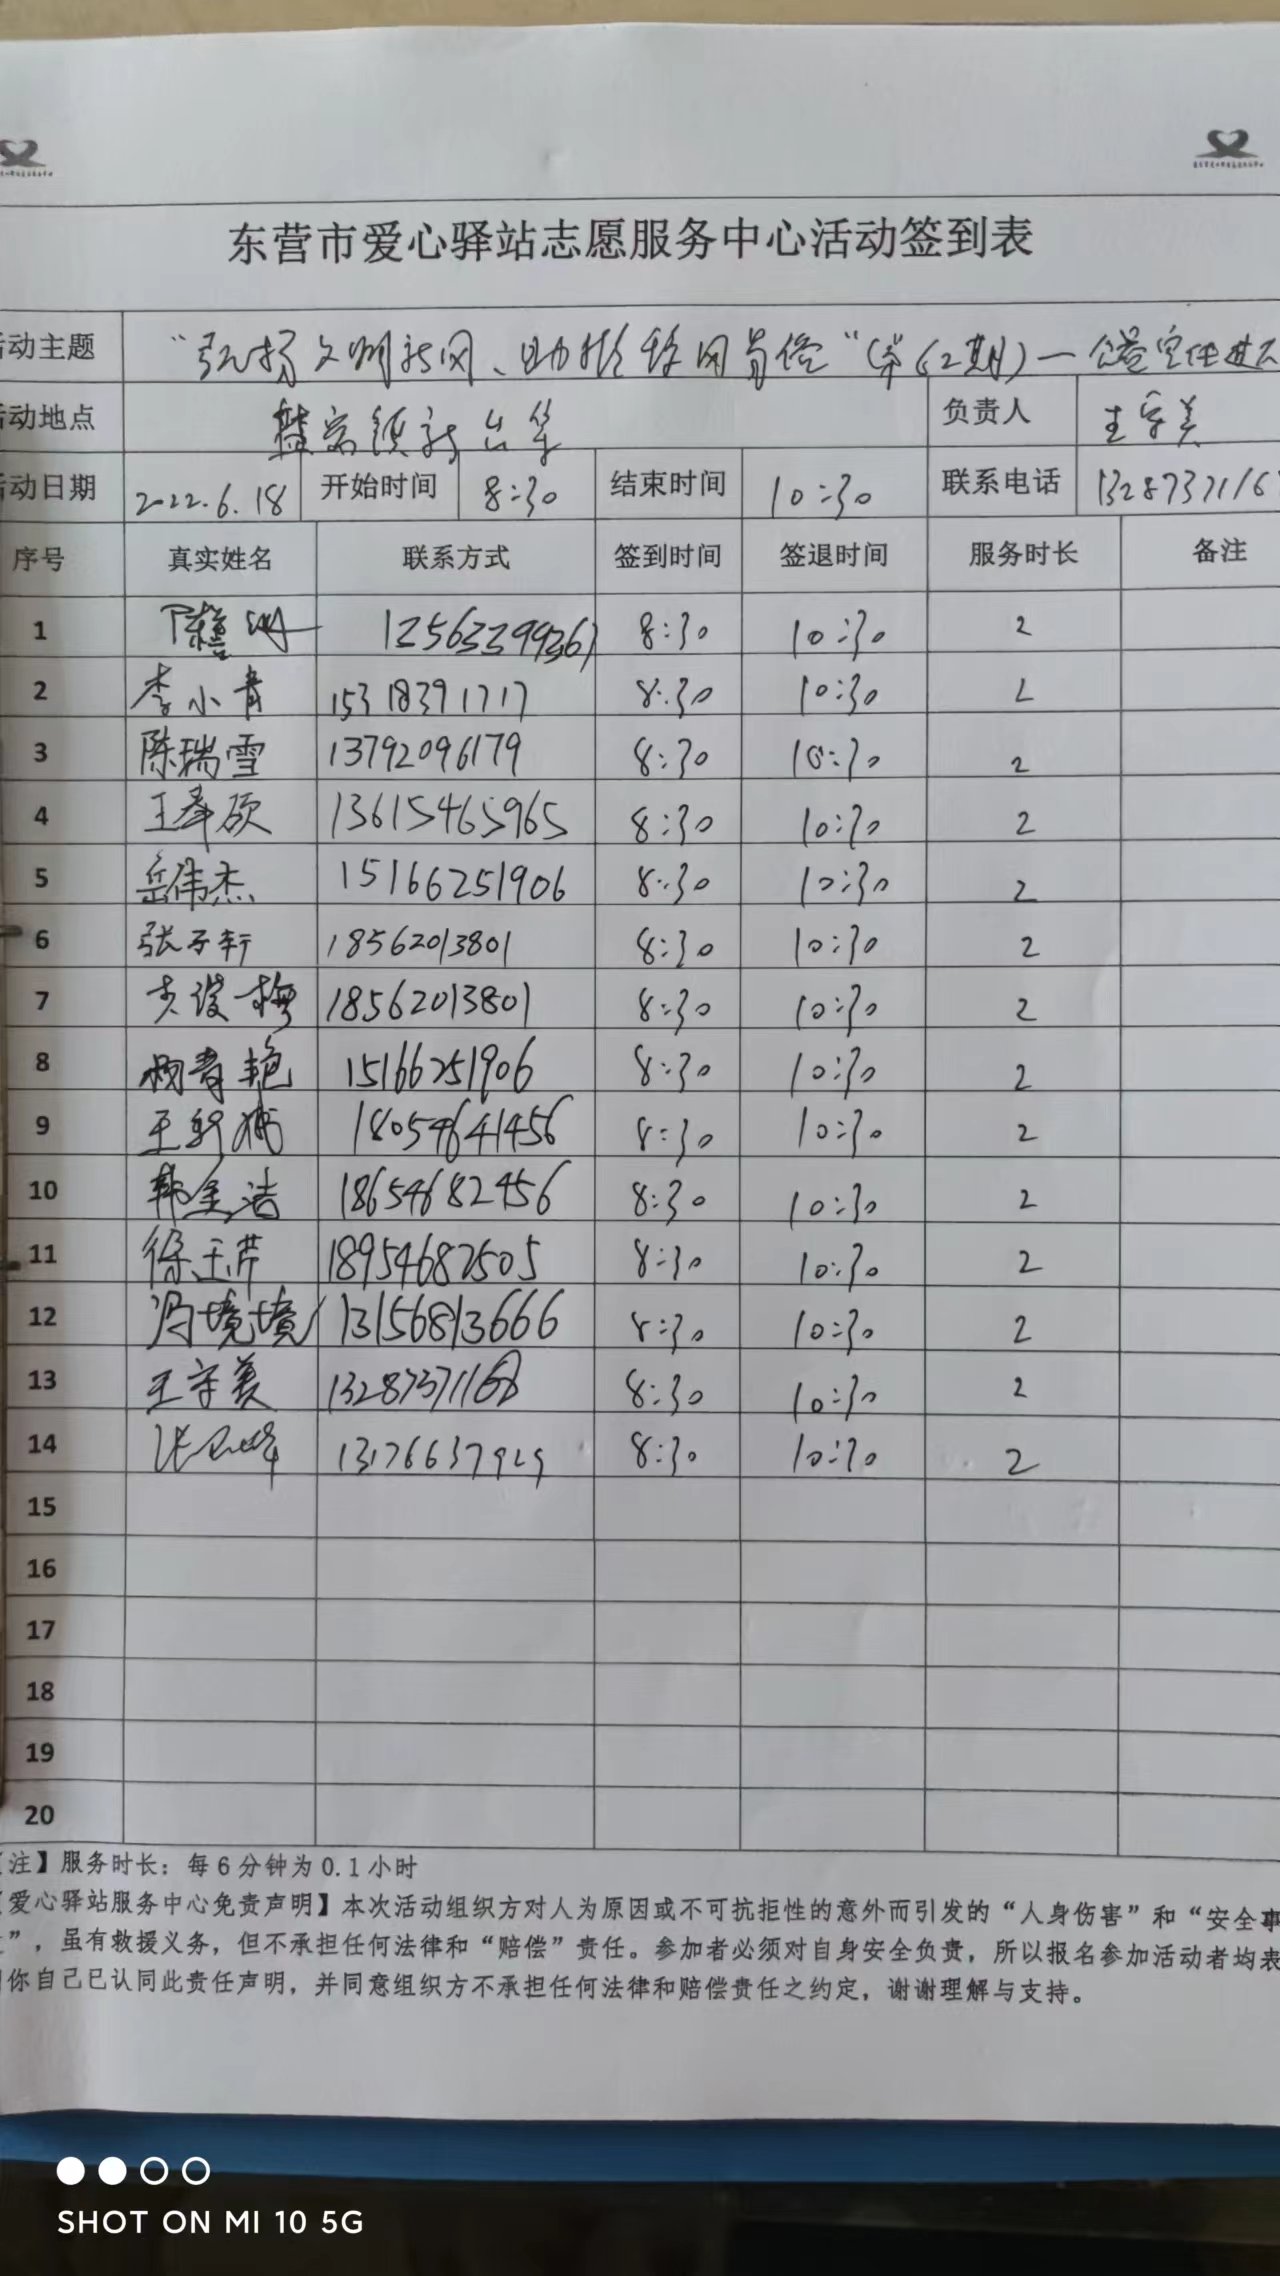 东营市爱心驿站志愿服务中心活动签到表
活动主题 "弘扬文明新风、助推移风易俗"(第62期)一公益宣传进
活动地点 负责人 王守美
活动日期 2022.6.18 开始时间 8:30 结束时间 10:30 联系电话 1328737116
序号 真实姓名 联系方式 签到时间 签退时间 服务时长 备注
1 8:30 10:30 2
2 李小青 15318391717 8:30 10:30 2
3 陈瑞雪 13792096179 8:30 10:30 2
4 13615465965 8:30 10:30 2
5 岳伟杰 15166251906 8:30 10:30 2
6 张子轩 18562013801 8:30 10:30 2
7 18562013801 8:30 10:30 2
8 15166251906 8:30 10:30 2
9 18054641456 8:30 10:30 2
10 韩金洁 18654682456 8:30 10:30 2
11 徐玉芹 18954682505 8:30 10:30 2
12 冯境境 13156813666 8:30 10:30 2
13 王守美 13287371168 8:30 10:30 2
14 13176637929 8:30 10:30 2
15
16
17
18
19
20
注】服务时长：每6分钟为0.1小时
爱心驿站服务中心免责声明】本次活动组织方对人为原因或不可抗拒性的意外而引发的“人身伤害”和“安全事
”，虽有救援义务，但不承担任何法律和“赔偿”责任。参加者必须对自身安全负责，所以报名参加活动者均表
你自己已认同此责任声明，并同意组织方不承担任何法律和赔偿责任之约定，谢谢理解与支持。
SHOT ON MI 10 5G